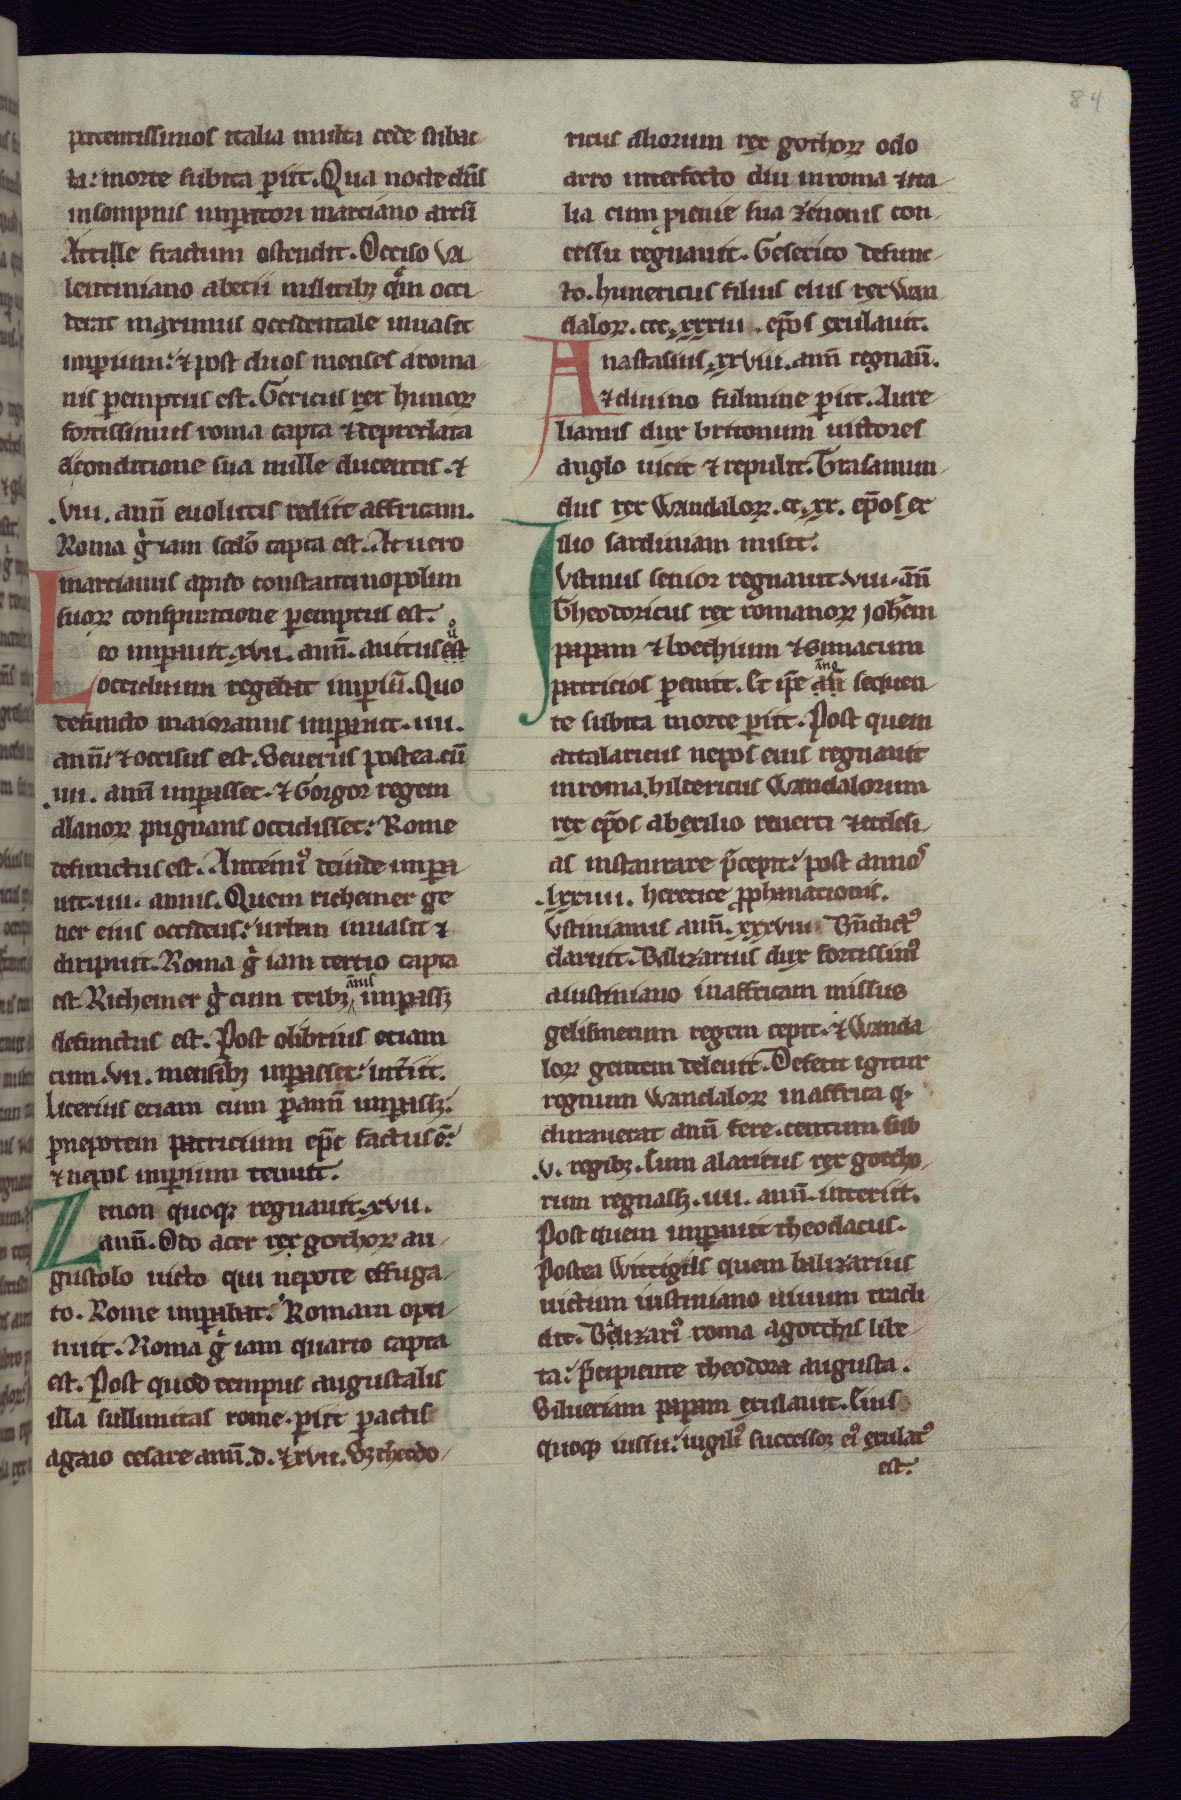 84
potentissimos italia multa cede subac
ta: morte subita p̄iit. Qua nocte dn̄s
insompnis imp̄atori marciano arcū
Attille fractum ostendit. Occiso va
lentiniano ab etii militibꝫ quē occi
derat maximus occidentale inuasit
imperium: ⁊ post duos menses a roma
nis p̄emptus est. Gericus rex hunoꝝ
fortissimus roma capta ⁊ depredata
a conditione sua mille ducentis. ⁊
.viii. ann̄ euolutis rediit affricam.
Roma g̊ iam scd̄o capta est. At uero
marcianus apud constantinopolim
suoꝝ conspiratione p̄emptus est.
Leo imp̄auit .xvii. ann̄. auitus
occiduum regebat imp̄iū. Quo
defuncto maioranus imp̄auit .iiii.
ann̄: ⁊ occisus est. Seuerus postea cū
.iiii. ann̄ imp̄asset. ⁊ Gorgor regem
alanoꝝ pugnans occidisset: Rome
defunctus est. Antemi᷒ deinde imp̄a
uit .iiii. annis. Quem richemer ge
ner eius occidens: urbem inuasit ⁊
diripuit. Roma g̊ iam tertio capta
est. Richemer g̊ cum tribꝫ annis imp̄assꝫ
defunctus est. Post olibrius etiam
cum .vii. mensibꝫ imp̄asset: int̄iit.
licerius etiam cum p̄ ann̄ imp̄assꝫ:
p nepotem patricium ep̄c factus ē:
⁊ nepos imp̄ium tenuit.
Zenon quoqꝫ regnauit .xvii.
ann̄. Odo acer rex gothoꝝ au
gustolo uicto qui nepote effuga
to. Rome imp̄abat: Romam opti
nuit. Roma g̊ iam quarto capta
est. Post quod tempus augustalis
illa sullimitas rome. p̄iit p̄actis
a gaio cesare ann̄ .d. ⁊ xvii. Vꝫ theodo
ricus aliorum rex gothoꝝ odo
acro interfecto diu in roma ⁊ ita
lia cum p̄ienie sua zenonis con
cessu regnauit. Geserico defunc
to. hunericus filius eius rex Wan
daloꝝ .ccc. xxxiii. ep̄os exulauit.
Anastasius .xxviii. ann̄ regnau̅.
⁊ diuino fulmine p̄iit. Aure
lianus dux britonum uictores
anglo uicit ⁊ repulit. Trasamun
dus rex Wandaloꝝ .cc. xx. ep̄os ex
ilio sardiniam misit.
Iustinus senior regnauit .viii. ann̄
Theodoricus rex romanoꝝ Joh̄em
papam ⁊ boethium ⁊ simacum
patricios p̄emit. Et ip̄e anno sequen
te subita morte p̄iit. Post quem
attalaricus nepos eius regnauit
in roma. hildericus Wandalorum
rex ep̄os ab exilio reuerti ⁊ eccl̄esi
as instaurare p̄cepit: post annos
.lxxiiii. heretice ꝓphanationis.
Iustinianus ann̄. xxxviii. Bn̄dict᷒
claruit. Balizarius dux fortissim᷒
a iustiniano in affricam missus
gelismerum regem cepit. ⁊ Wanda
loꝝ gentem deleuit. Defecit igitur
regnum Wandaloꝝ in affrica qđ
durauerat ann̄ fere .centum sub
.v. regibꝫ. Cum alaricus rex gotho
rum regnassꝫ .iiii. ann̄. interiit.
Post quem imp̄auit theodacus.
Postea Wittigils quem balizarius
uictum iustiniano uiuum tradi
dit. Balizari᷒ roma a gotthis libe
ta: p̄cipiente theodora augusta.
Silueriam papam exulauit. Cuius
quoqꝫ iussu: uigili᷒ successor ei᷒ exulat᷒
est.